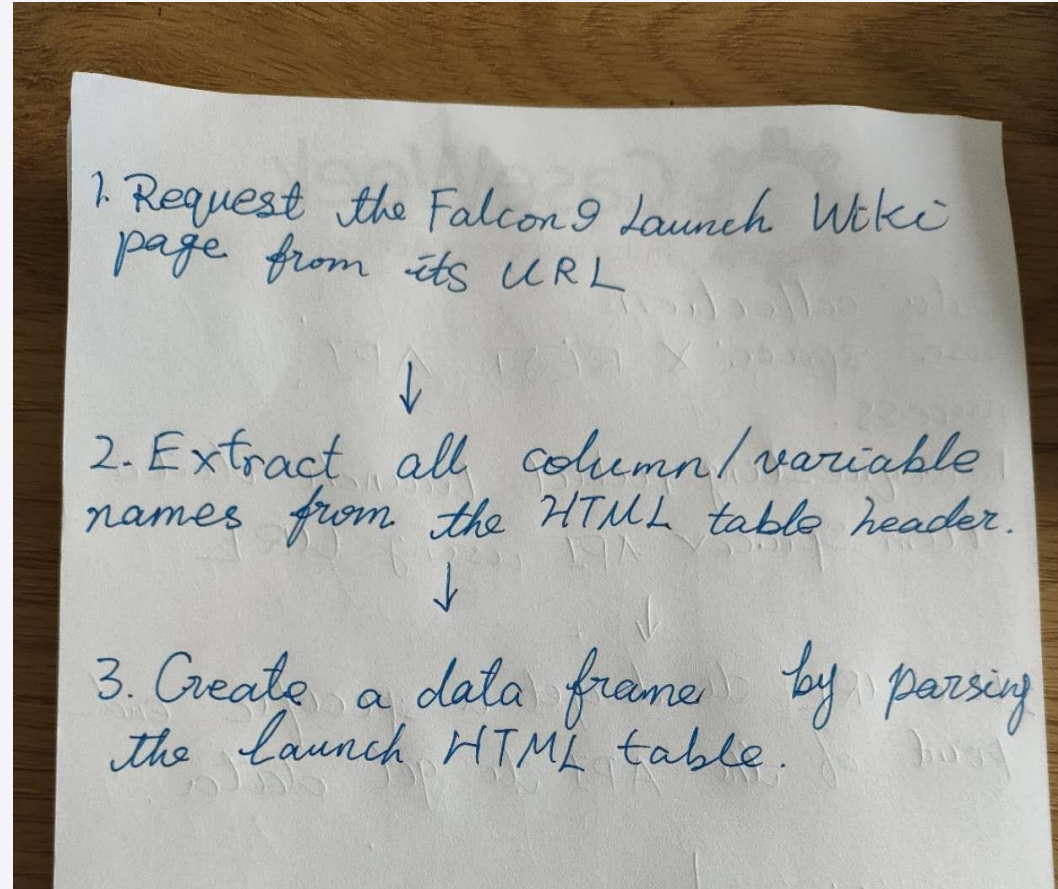 1. Request the Falcon 9 Launch Wiki
page from its URL
↓
2. Extract all column/variable
names from the HTML table header.
↓
3. Create a data frame by parsing
the launch HTML table.